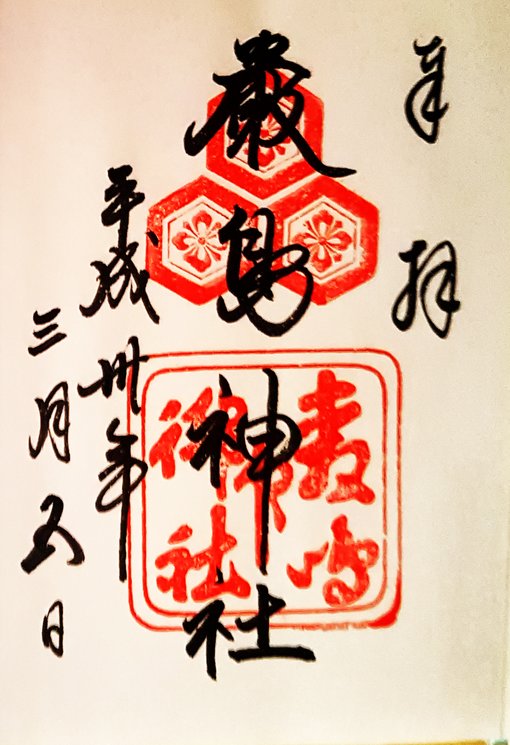 奉拝
厳島神社
平成卅年
三月五日